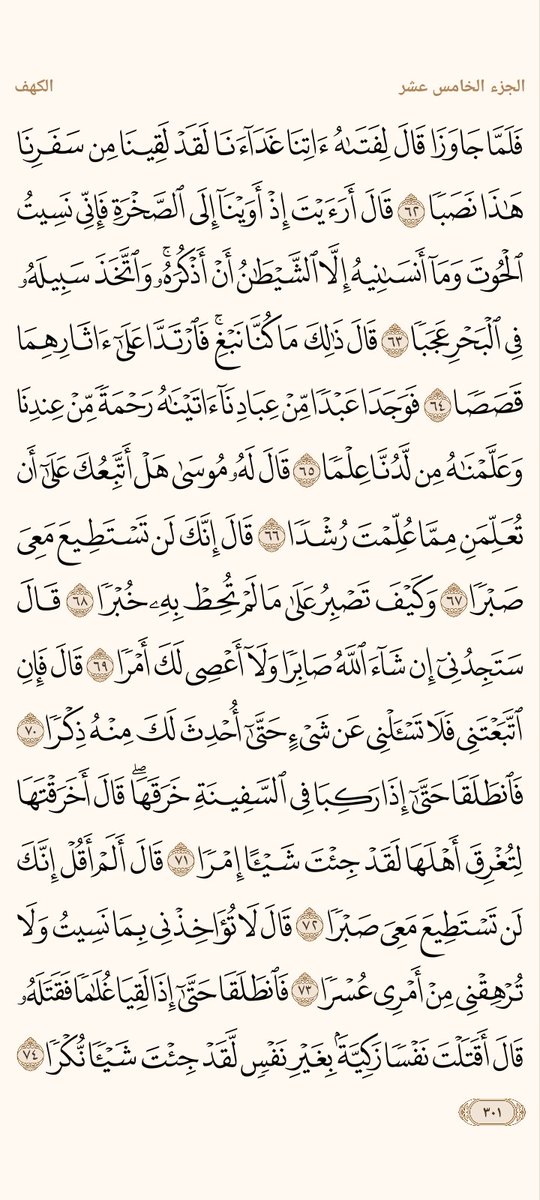 الجزء الخامس عشر
الكهف
فَلَمَّا جَاوَزَا قَالَ لِفَتَىٰهُ ءَاتِنَا غَدَآءَنَا لَقَدۡ لَقِينَا مِن سَفَرِنَا
هَٰذَا نَصَبٗا ٦٢ قَالَ أَرَءَيۡتَ إِذۡ أَوَيۡنَآ إِلَى ٱلصَّخۡرَةِ فَإِنِّي نَسِيتُ
ٱلۡحُوتَ وَمَآ أَنسَىٰنِيهُ إِلَّا ٱلشَّيۡطَٰنُ أَنۡ أَذۡكُرَهُۥۚ وَٱتَّخَذَ سَبِيلَهُۥ
فِي ٱلۡبَحۡرِ عَجَبٗا ٦٣ قَالَ ذَٰلِكَ مَا كُنَّا نَبۡغِۚ فَٱرۡتَدَّا عَلَىٰٓ ءَاثَارِهِمَا
قَصَصٗا ٦٤ فَوَجَدَا عَبۡدٗا مِّنۡ عِبَادِنَآ ءَاتَيۡنَٰهُ رَحۡمَةٗ مِّنۡ عِندِنَا
وَعَلَّمۡنَٰهُ مِن لَّدُنَّا عِلۡمٗا ٦٥ قَالَ لَهُۥ مُوسَىٰ هَلۡ أَتَّبِعُكَ عَلَىٰٓ أَن
تُعَلِّمَنِ مِمَّا عُلِّمۡتَ رُشۡدٗا ٦٦ قَالَ إِنَّكَ لَن تَسۡتَطِيعَ مَعِيَ
صَبۡرٗا ٦٧ وَكَيۡفَ تَصۡبِرُ عَلَىٰ مَا لَمۡ تُحِطۡ بِهِۦ خُبۡرٗا ٦٨ قَالَ
سَتَجِدُنِيٓ إِن شَآءَ ٱللَّهُ صَابِرٗا وَلَآ أَعۡصِي لَكَ أَمۡرٗا ٦٩ قَالَ فَإِنِ
ٱتَّبَعۡتَنِي فَلَا تَسۡـَٔلۡنِي عَن شَيۡءٍ حَتَّىٰٓ أُحۡدِثَ لَكَ مِنۡهُ ذِكۡرٗا ٧٠
فَٱنطَلَقَا حَتَّىٰٓ إِذَا رَكِبَا فِي ٱلسَّفِينَةِ خَرَقَهَاۖ قَالَ أَخَرَقۡتَهَا
لِتُغۡرِقَ أَهۡلَهَا لَقَدۡ جِئۡتَ شَيۡـًٔا إِمۡرٗا ٧١ قَالَ أَلَمۡ أَقُلۡ إِنَّكَ
لَن تَسۡتَطِيعَ مَعِيَ صَبۡرٗا ٧٢ قَالَ لَا تُؤَاخِذۡنِي بِمَا نَسِيتُ وَلَا
تُرۡهِقۡنِي مِنۡ أَمۡرِي عُسۡرٗا ٧٣ فَٱنطَلَقَا حَتَّىٰٓ إِذَا لَقِيَا غُلَٰمٗا فَقَتَلَهُۥ
قَالَ أَقَتَلۡتَ نَفۡسٗا زَكِيَّةَۢ بِغَيۡرِ نَفۡسٖ لَّقَدۡ جِئۡتَ شَيۡـٔٗا نُّكۡرٗا ٧٤
٣٠١